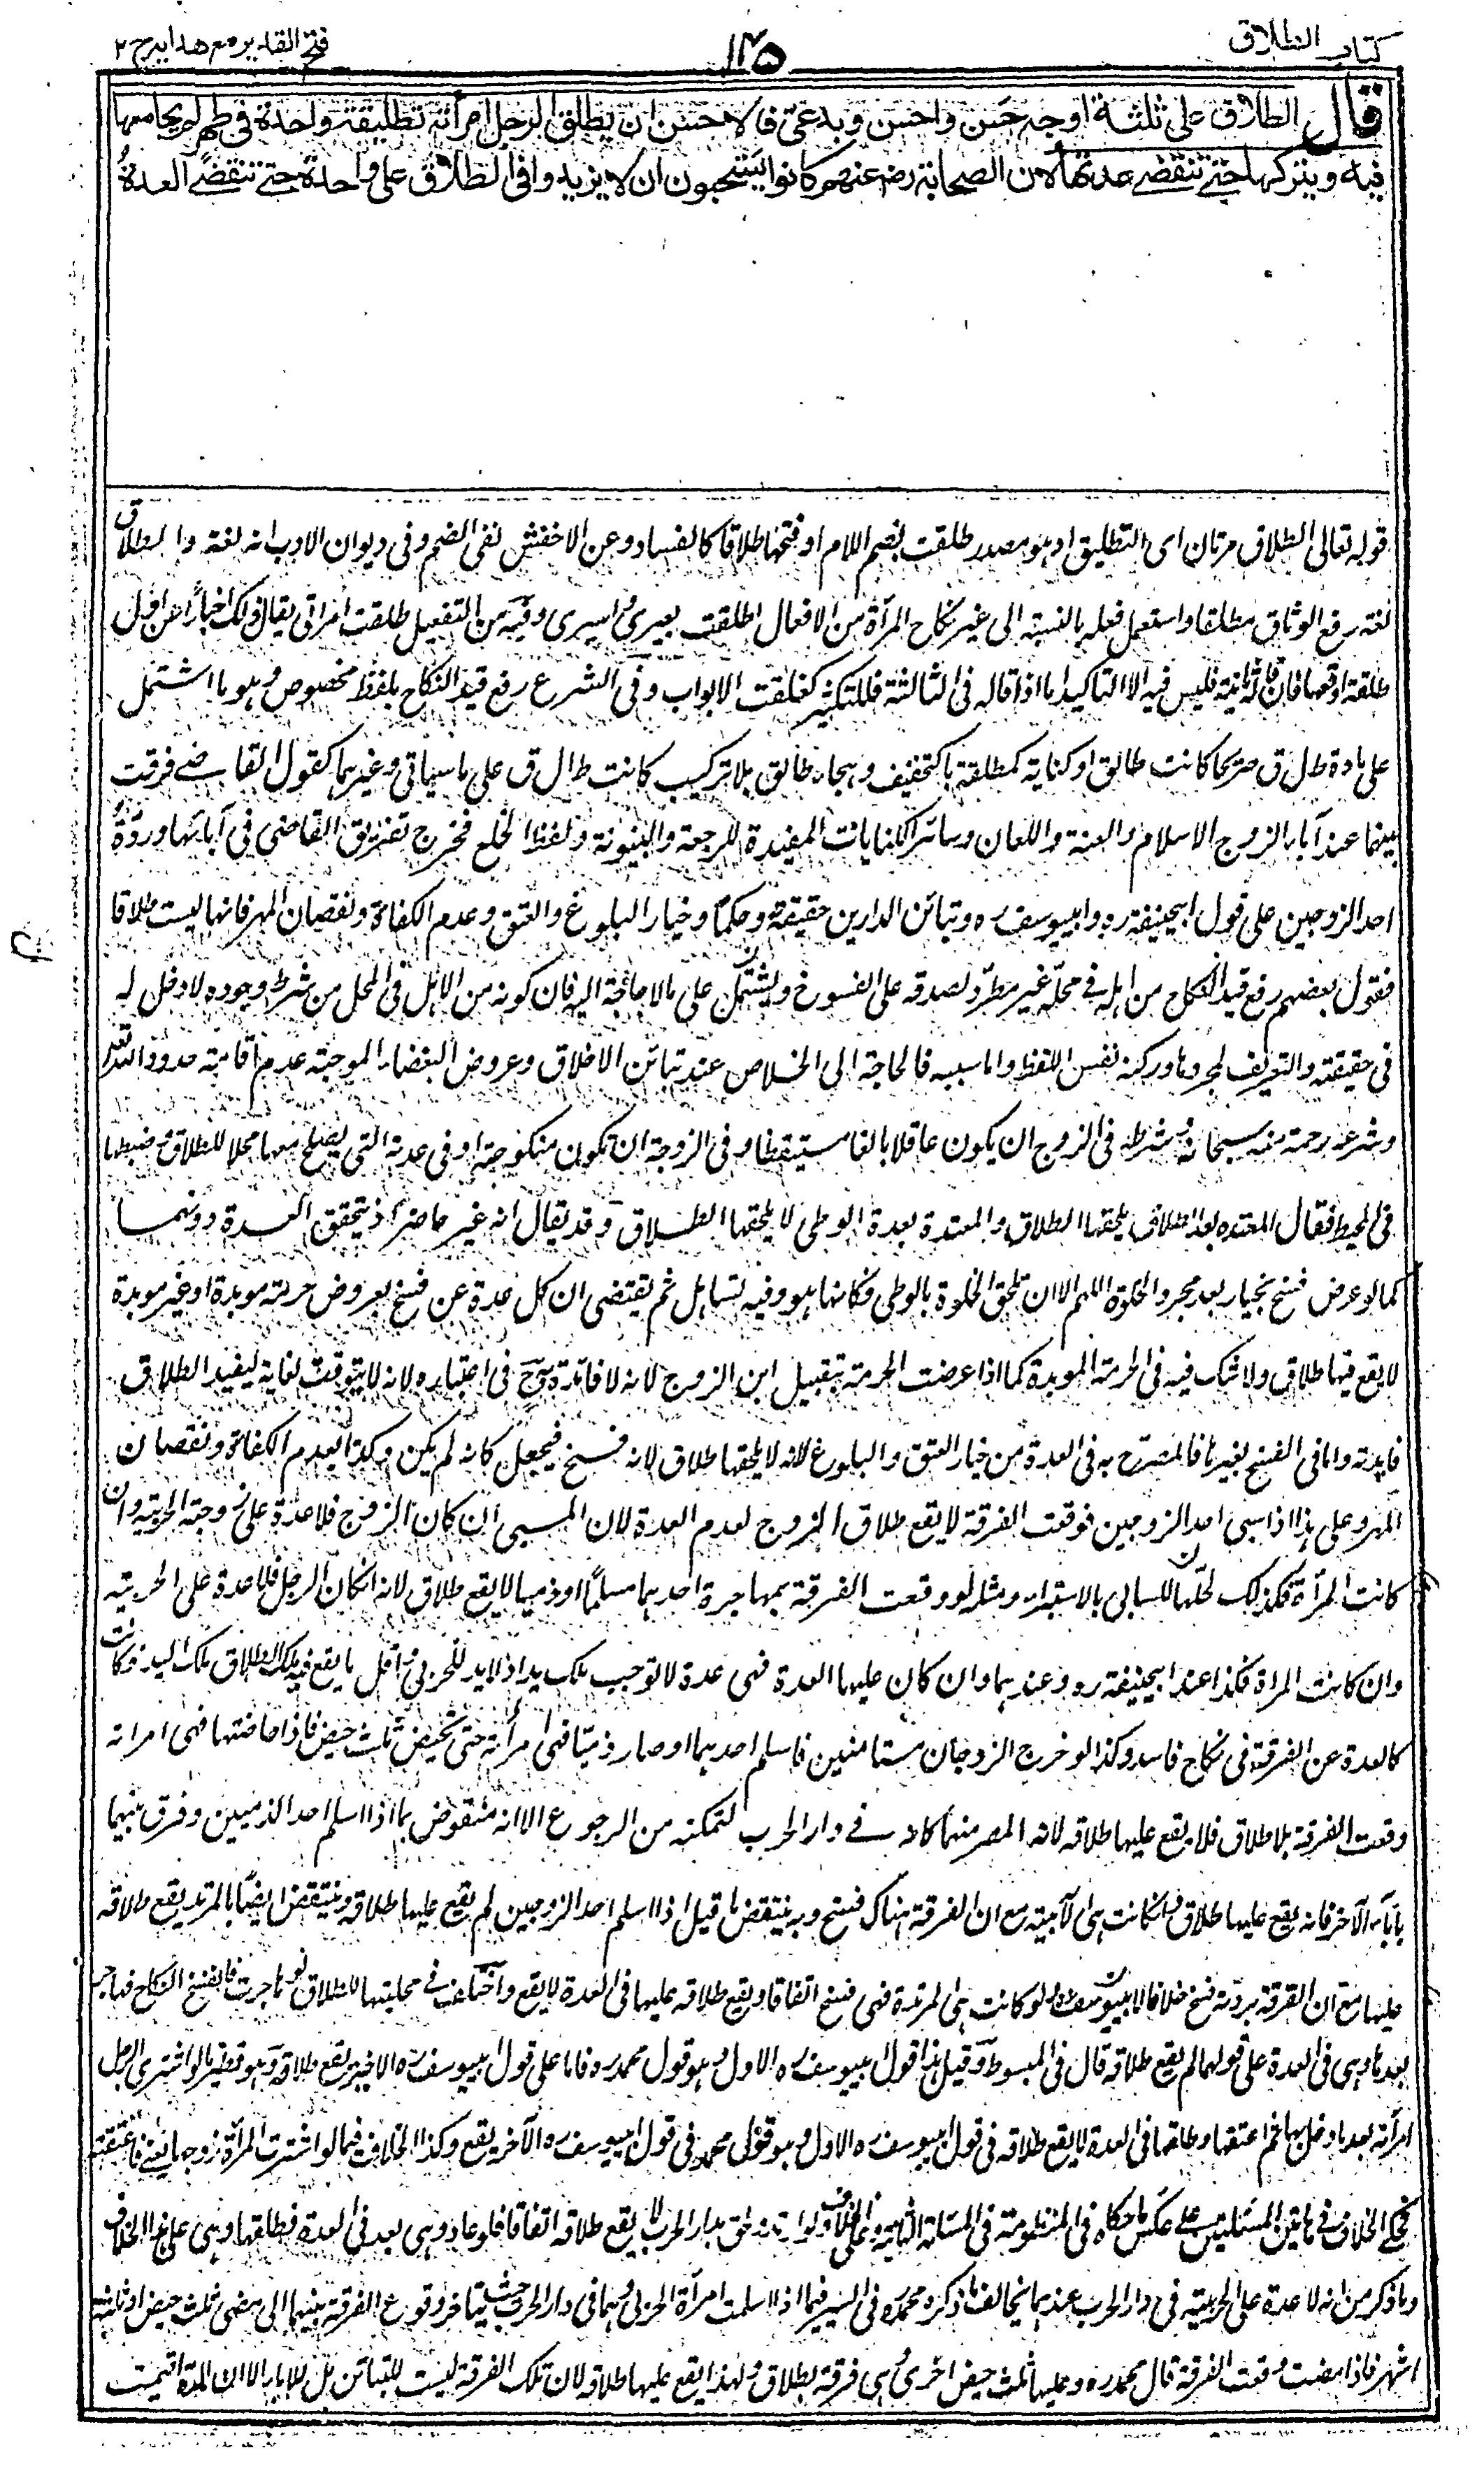 كتاب الطلاق
١٤٥
فتح القدير مع هدايه ج ٢
قال الطلاق على ثلثة اوجه حسن واحسن وبدعي فالاحسن ان يطلق الرجل امرأته تطليقة واحدة في طهر لم يجامعها
فيه ويتركها حتى تنقضي عدتها لان الصحابة رض عنهم كانوا يستحبون ان لا يزيدوا في الطلاق على واحدة حتى تنقضي العدة
قوله تعالى الطلاق مرتان اى التطليق او هو مصدر طلقت بضم اللام او فتحها طلاقا كالفساد وعن الاخفش نفى الضم وفى ديوان الادب انه لغة والطلاق
لغة رفع الوثاق مطلقا واستعمل فعله بالنسبة الى غير نكاح المرأة من الافعال اطلقت بعيرى واسيرى وفيه من التفعيل طلقت امرأتى يقال ذلك اخبارا عن اول
طلقة اوقعها فان قاله ثانية فليس فيه الا التاكيد اما اذا قاله فى الثالثة فللتكثير كغلقت الابواب وفى الشرع رفع قيد النكاح بلفظ مخصوص وهو ما اشتمل
على مادة ط ل ق صريحا كانت طالق او كناية كمطلقة بالتخفيف وهجاء طالق بلا تركيب كانت ط ا ل ق على ما سياتى وغيرهما كقول القاضے فرقت
بينهما عند آباء الزوج الاسلام والعنة واللعان وسائر الكنايات المفيدة للرجعة والبينونة ولفظ الخلع فخرج تفريق القاضى فى آبائها وردة
احد الزوجين على قول ابيحنيفة ره وابييوسف ره وتباين الدارين حقيقة وحكما وخيار البلوغ والعتق وعدم الكفاءة ونقصان المهر فانها ليست طلاقا
فقول بعضهم رفع قيد النكاح من اهله فے محله غير مطرد لصدقه على الفسوخ ويشتمل على ما لا حاجة اليه فان كونه من الاهل فى المحل من شرط وجوده لا دخل له
فى حقيقته والتعريف لمجردها وركنه نفس اللفظ واما سببه فالحاجة الى الخلاص عند تباين الاخلاق وعروض البغضاء الموجبة عدم اقامة حدود الله تعالى
وشرعه رحمة منه سبحانه وشرطه فى الزوج ان يكون عاقلا بالغا مستيقظا وفى الزوجة ان تكون منكوحته او فى عدته التى يصلح معها محلا للطلاق وضبطها
فى المحيط فقال المعتدة بعد الطلاق يلحقها الطلاق والمعتدة بعدة الوطى لا يلحقها الطلاق وقد يقال انه غير حاصر اذ يتحقق العدة دونهما
كما لو عرض فسخ بخيار بعد مجرد الخلوة اللهم الا ان تلحق الخلوة بالوطى فكانها هو وفيه تساهل ثم يقتضى ان كل عدة عن فسخ بعروض حرمة موبدة او غير موبدة
لا يقع فيها طلاق ولا شك فيه فى الحرمة الموبدة كما اذا عرضت الحرمة بتقبيل ابن الزوج لانه لا فائدة ح فى اعتباره لانه لا يتوقت لغاية ليفيد الطلاق
فايدته واما فى الفسخ بغيرها فالمصرح به فى العدة من خيار العتق والبلوغ انه لا يلحقها طلاق لانه فسخ فيجعل كانه لم يكن وكذا بعدم الكفاءة ونقصان
المهر وعلى هذا اذا سبى احد الزوجين فوقعت الفرقة لا يقع طلاق الزوج لعدم العدة لان المسبى ان كان الزوج فلا عدة على زوجته الحربية وان
كانت المرأة فكذلك لحلها للسابى بالاستبراء ومثله لو وقعت الفرقة بمهاجرة احدهما مسلما او ذميا لا يقع طلاق لانه ان كان الرجل فلا عدة على الحربية
وان كانت المرأة فكذا عند ابيحنيفة ره وعندهما وان كان عليها العدة فهى عدة لا توجب ملك يد اذ لا يد للحربى واقل ما يقع فيه ملك الطلاق ملك اليد فكانت
كالعدة عن الفرقة فى نكاح فاسد وكذا لو خرج الزوجان مستامنين فاسلم احدهما او صار ذميا فهى امرأته حتى تحيض ثلث حيض فاذا حاضتها فهى امراته
وقعت الفرقة بلا طلاق فلا يقع عليها طلاقه لان المصر منهما كانه فے دار الحرب لتمكنه من الرجوع الا انه منقوض بما اذا اسلم احد الذميين وفرق بينهما
باباء الآخر فانه يقع عليها طلاق وان كانت هى الآبية مع ان الفرقة هناك فسخ وبه ينتقض ما قيل اذا اسلم احد الزوجين لم يقع عليها طلاقه وينتقض ايضا بالمرتد يقع طلاقه
عليها مع ان الفرقة بردته فسخ خلافا لابييوسف ره ولو كانت هى المرتدة فهى فسخ اتفاقا ويقع طلاقه عليها فى العدة لا يقع واختلف فے محليتها للطلاق لو هاجرت فانفسخ النكاح فهاجر
بعدها وهى فى العدة على قولهما لم يقع طلاقه قال فى المبسوط وقيل هذا قول ابييوسف ره الاول وهو قول محمد ره فاما على قول ابييوسف ره الاخير يقع طلاقه وهو نظير ما لو اشترى الرجل
امرأته بعد ما دخل بها ثم اعتقها وطلقها فى العدة لا يقع طلاقه فى قول ابييوسف ره الاول وهو قول محمد وفى قول ابييوسف ره الآخر يقع وكذا الخلاف فيما لو اشترت المرأة زوجها يعنے فاعتقته
فحكى الخلاف فے هاتين المسئلتين على عكس ما حكاه فى المنظومة فى المسئلة الثانية ولو ارتد ولحق بدار الحرب لا يقع طلاقه اتفاقا فلو عاد وهى بعد فى العدة فطلقها وهى على هذا الخلاف
وما ذكر من انه لا عدة على الحربية فى دار الحرب عندهما يخالف ما ذكره محمد ره فى السير فيما اذا اسلمت امرأة الحربى وهما فى دار الحرب حيث يتاخر وقوع الفرقة بينهما الى مضى ثلث حيض او ثلثة
اشهر فاذا مضت وقعت الفرقة قال محمد ره وعليها ثلث حيض اخرى وهى فرقة بطلاق ولهذا يقع عليها طلاقه لان تلك الفرقة ليست للتباين بل للاباء الا ان المدة اقيمت